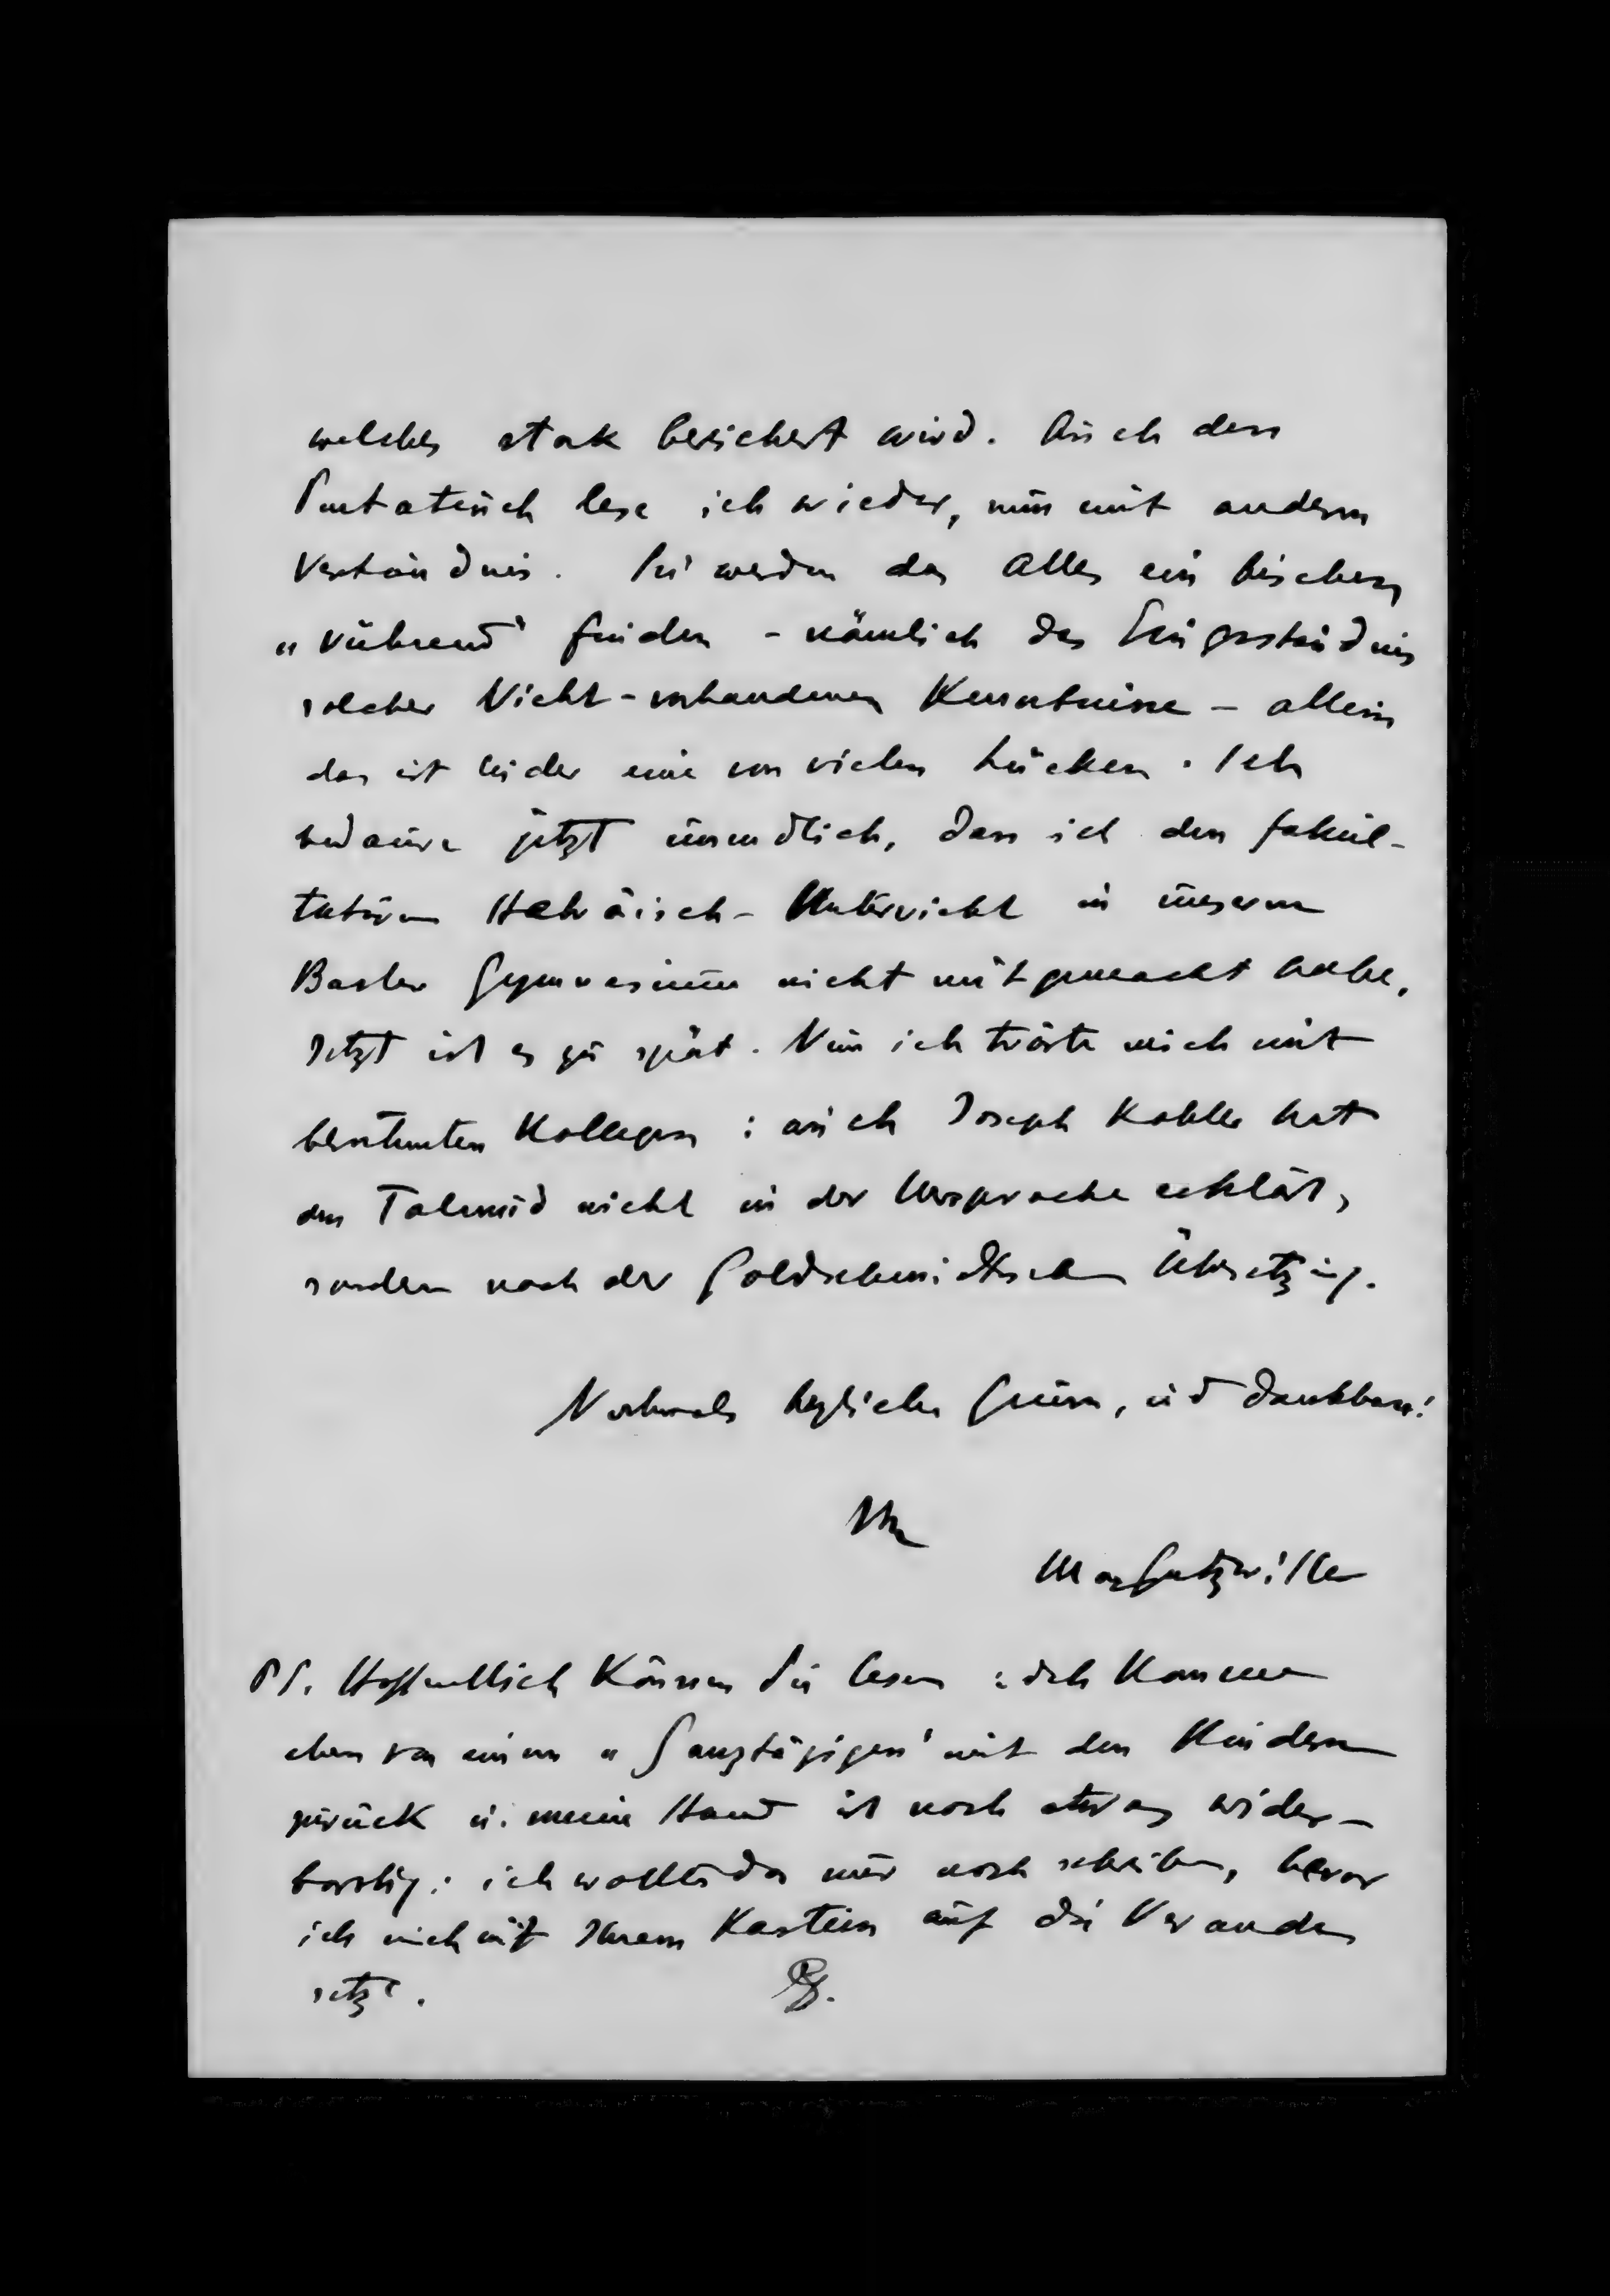 welches stark bereichert wird. Auch den
Pentateuch lese ich wieder, nun mit anderm
Verständnis. Sie werden das Alles ein bischen
„rührend" finden – nämlich das Eingeständnis
solcher Nicht-vorhandenen Kenntnisse – allein
das ist leider eine von vielen Lücken. Ich
bedaure jetzt unendlich, dass ich den fakul-
tativen Hebräisch-Unterricht in unserm
Basler Gymnasium nicht mitgemacht habe,
Jetzt ist es zu spät. Nun ich tröste mich mit
berühmten Kollegen: auch Joseph Kohler hat
den Talmud nicht in der Ursprache erklärt,
sondern nach der Goldschmidtschen Übersetzung.
Nochmals herzliche Grüsse, und dankbar!
Ihr
Max Gutzwiller
PS. Hoffentlich können Sie lesen: ich komme
eben von einem „Ganztägigen" mit den Kindern
zurück u. meine Hand ist noch etwas wider-
borstig: ich wollte das nur noch schreiben, bevor
ich mich mit Ihrem Kastein auf die Veranda
setze.